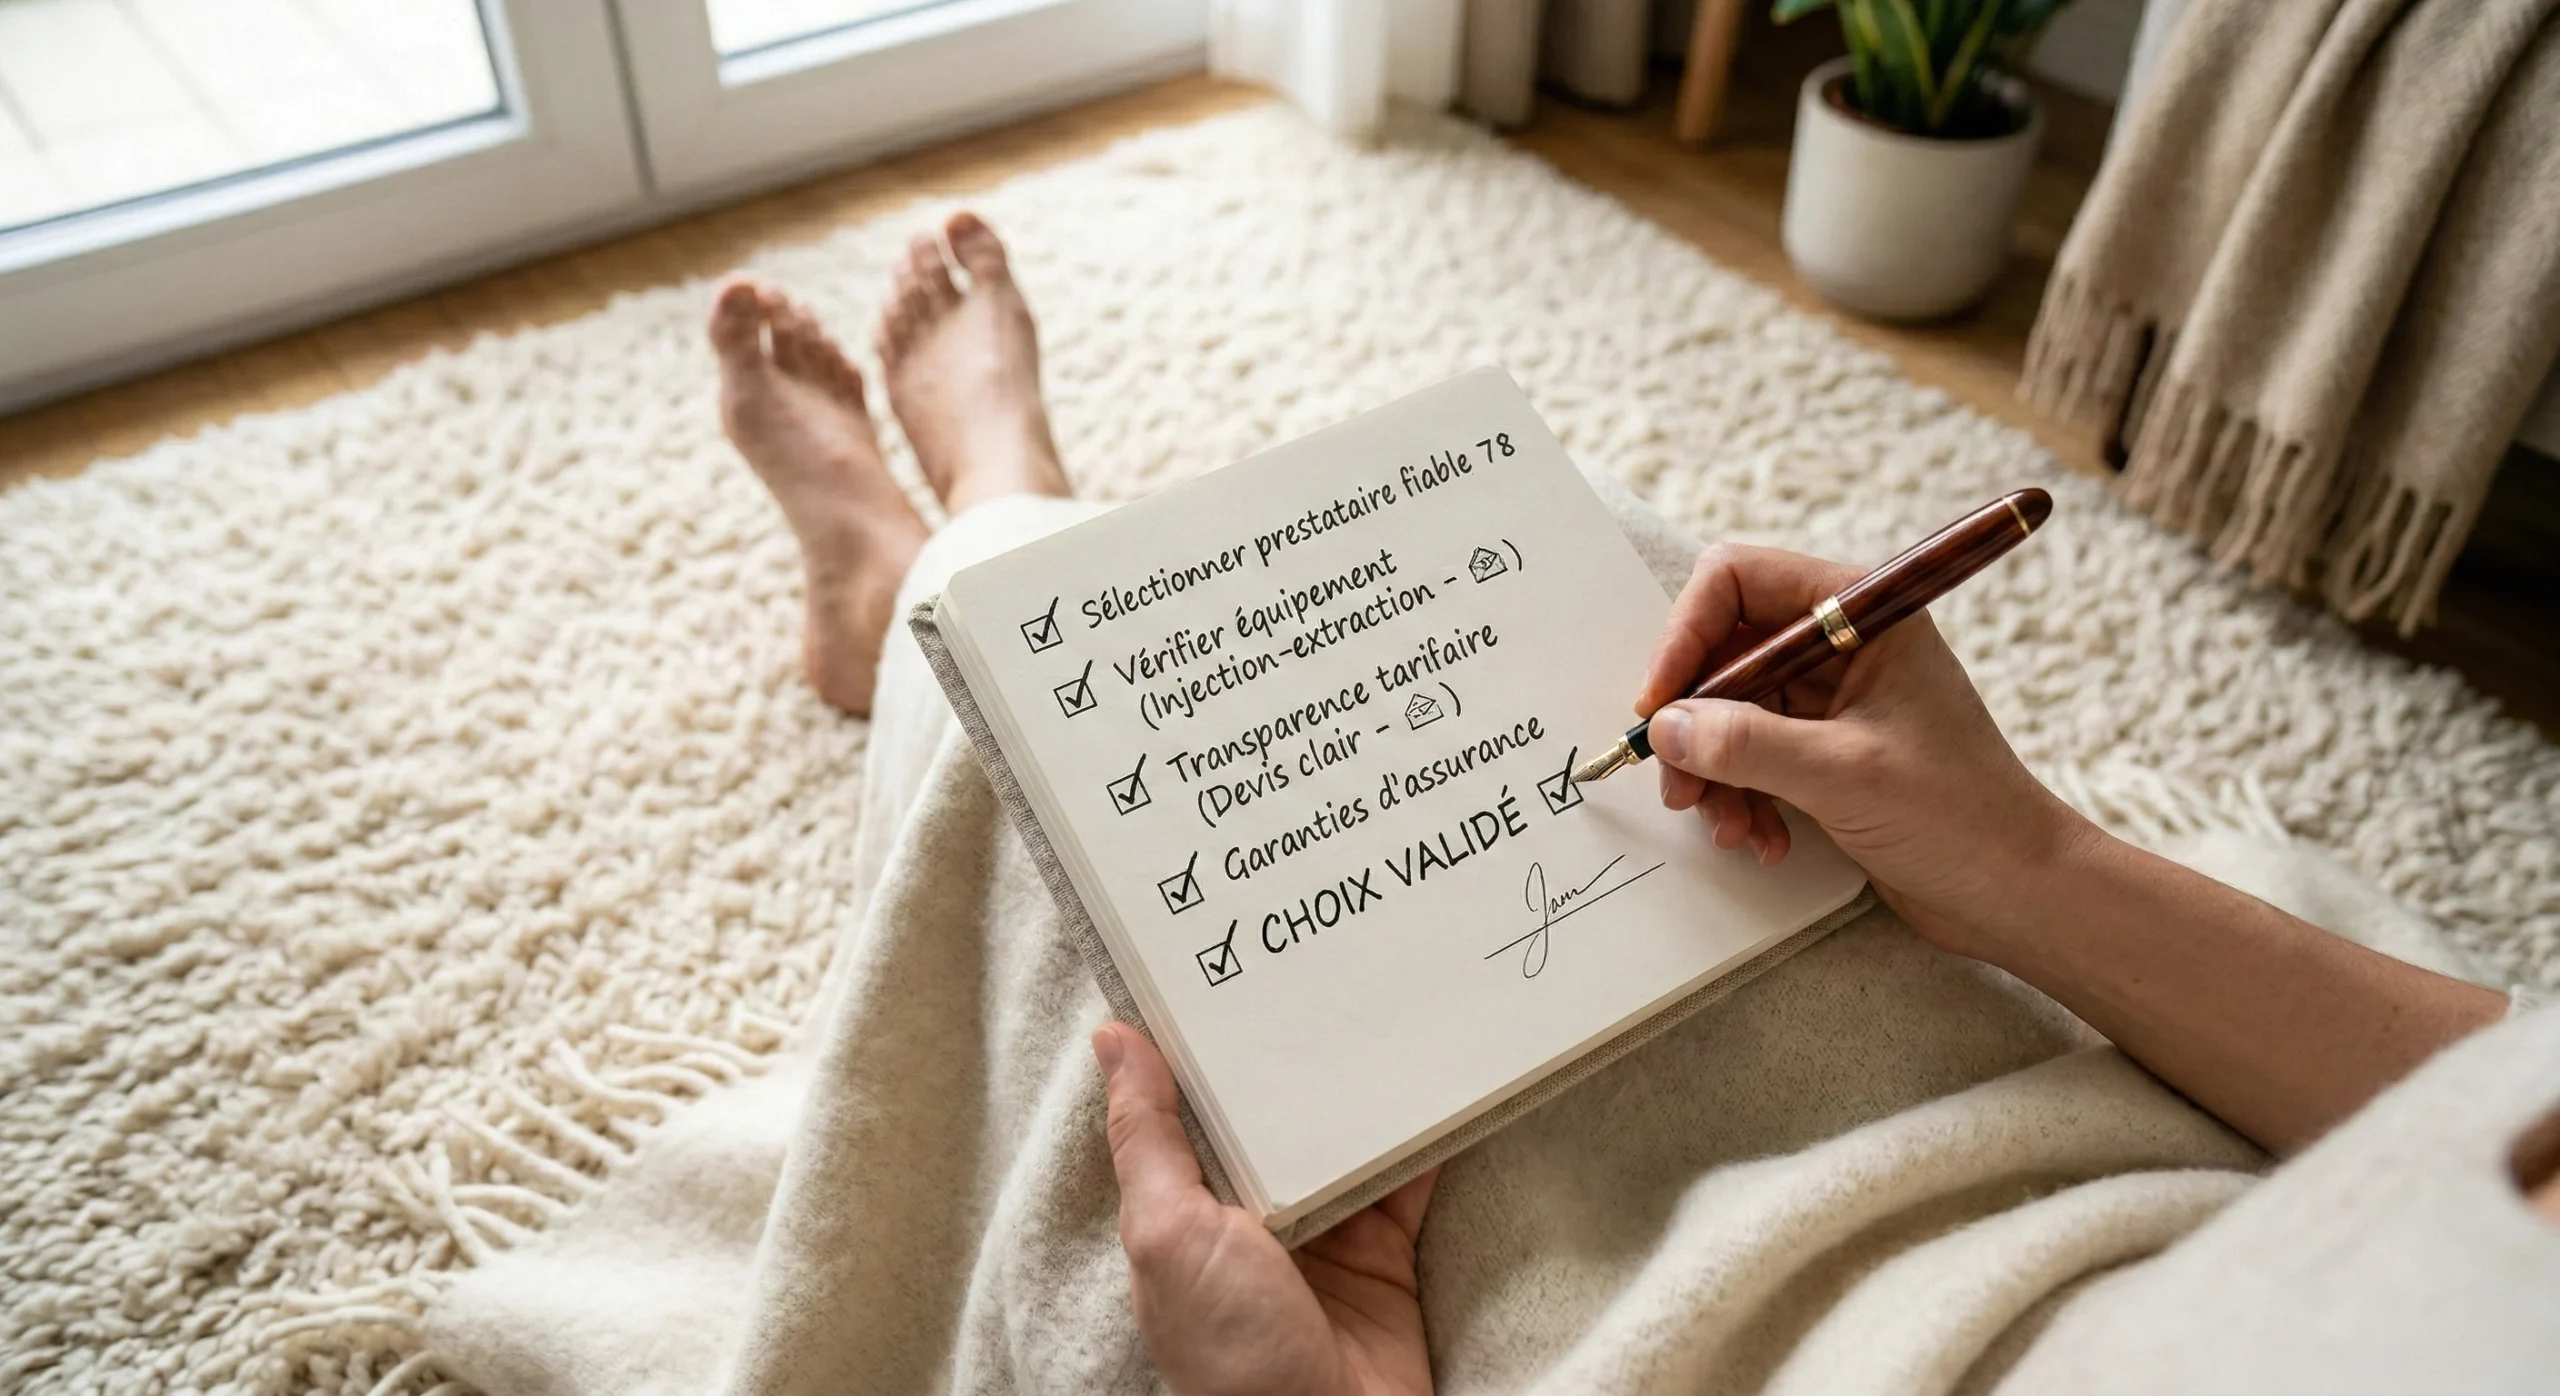 Sélectionner prestataire fiable 78
Vérifier équipement
(Injection-extraction - )
Transparence tarifaire
(Devis clair - )
Garanties d'assurance
CHOIX VALIDÉ